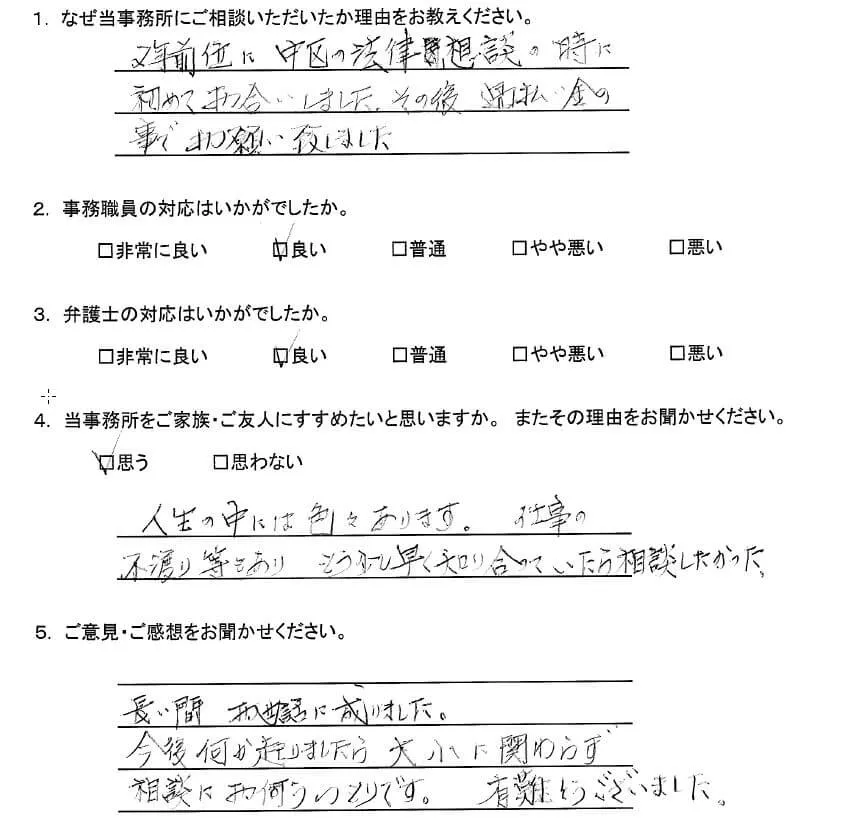 1. なぜ当事務所にご相談いただいたか理由をお教えください。
2年前位に 中区の法律相談の時に
初めてお合いしました。その後 過払い金の
事でお願い致しました
2. 事務職員の対応はいかがでしたか。
□非常に良い ☑良い □普通 □やや悪い □悪い
3. 弁護士の対応はいかがでしたか。
□非常に良い ☑良い □普通 □やや悪い □悪い
4. 当事務所をご家族・ご友人にすすめたいと思いますか。 またその理由をお聞かせください。
☑思う □思わない
人生の中には色々あります。 仕事の
不渡り等もあり もう少し早く知り合っていたら相談したかった。
5. ご意見・ご感想をお聞かせください。
長い間 お世話に成りました。
今後何か起りましたら 大小に関わらず
相談にお伺うつもりです。 有難とうございました。